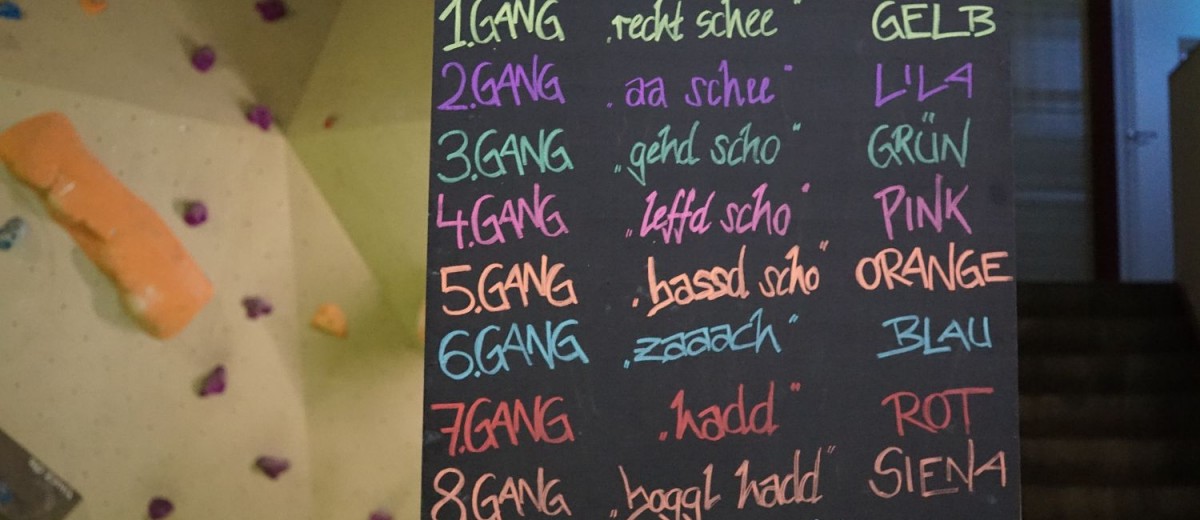 1.GANG „recht schee" GELB
2.GANG „aa schee" LILA
3.GANG „gehd scho" GRÜN
4.GANG „leffd scho" PINK
5.GANG „bassd scho" ORANGE
6.GANG „zaaach" BLAU
7.GANG „hadd" ROT
8.GANG „boggl hadd" SIENA